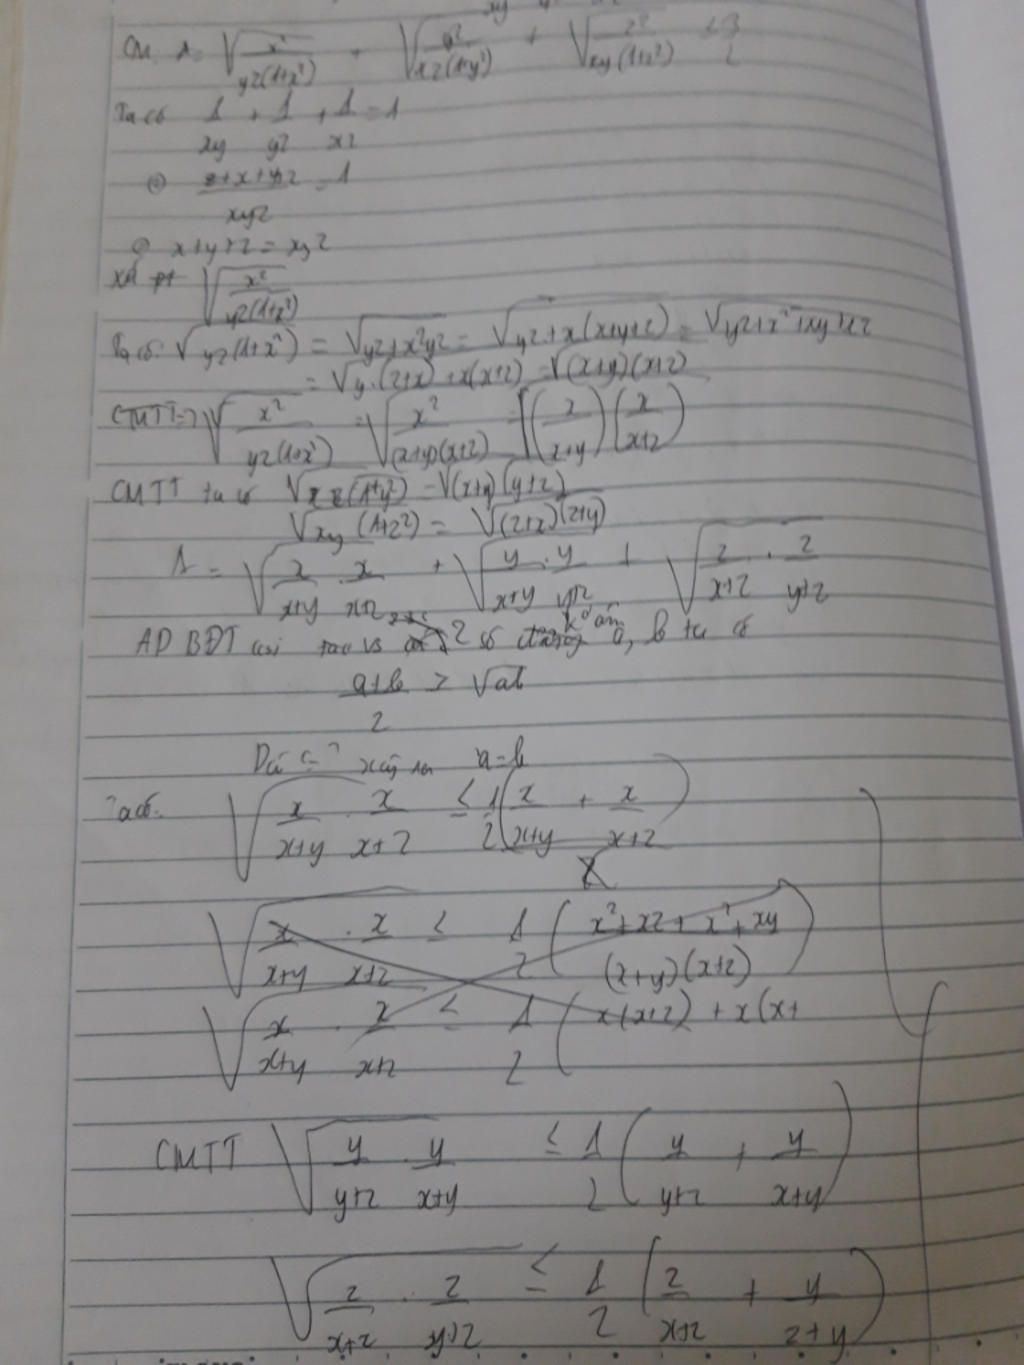 CM A = √(x²/yz(1+x²)) + √(y²/xz(1+y²)) + √(z²/xy(1+z²)) ≤ 3/2
Ta có 1/xy + 1/yz + 1/xz = 1
⇔ z+x+y/xyz = 1
⇔ x+y+z = xyz
Xét pt √(x²/yz(1+x²))
Ta có: √yz(1+x²) = √yz+x²yz = √yz+x(x+y+z) = √yz+x²+xy+xz
= √y.(z+x)+x(x+z) = √(x+y)(x+z)
CMTT => √(x²/yz(1+x²)) = √(x²/(x+y)(x+z)) = √(x/x+y)(x/x+z)
CMTT ta có √xz(1+y²) = √(x+y)(y+z)
√xy(1+z²) = √(z+x)(z+y)
A = √(x/x+y . x/x+z) + √(y/x+y . y/y+z) + √(z/x+z . z/y+z)
AD BĐT cosi vs 2 số k° âm a, b ta có
a+b/2 ≥ √ab
Dấ "=" xảy ra a=b
Ta có: √(x/x+y . x/x+z) ≤ 1/2 (x/x+y + x/x+z)
√(x/x+y . x/x+z) ≤ 1/2 (x²+xz+x²+xy/(x+y)(x+z))
√(x/x+y . x/x+z) ≤ 1/2 (x(x+z)+x(x+
CMTT √(y/y+z . y/x+y) ≤ 1/2 (y/y+z + y/x+y)
√(z/x+z . z/y+z) ≤ 1/2 (z/x+z + y/z+y)